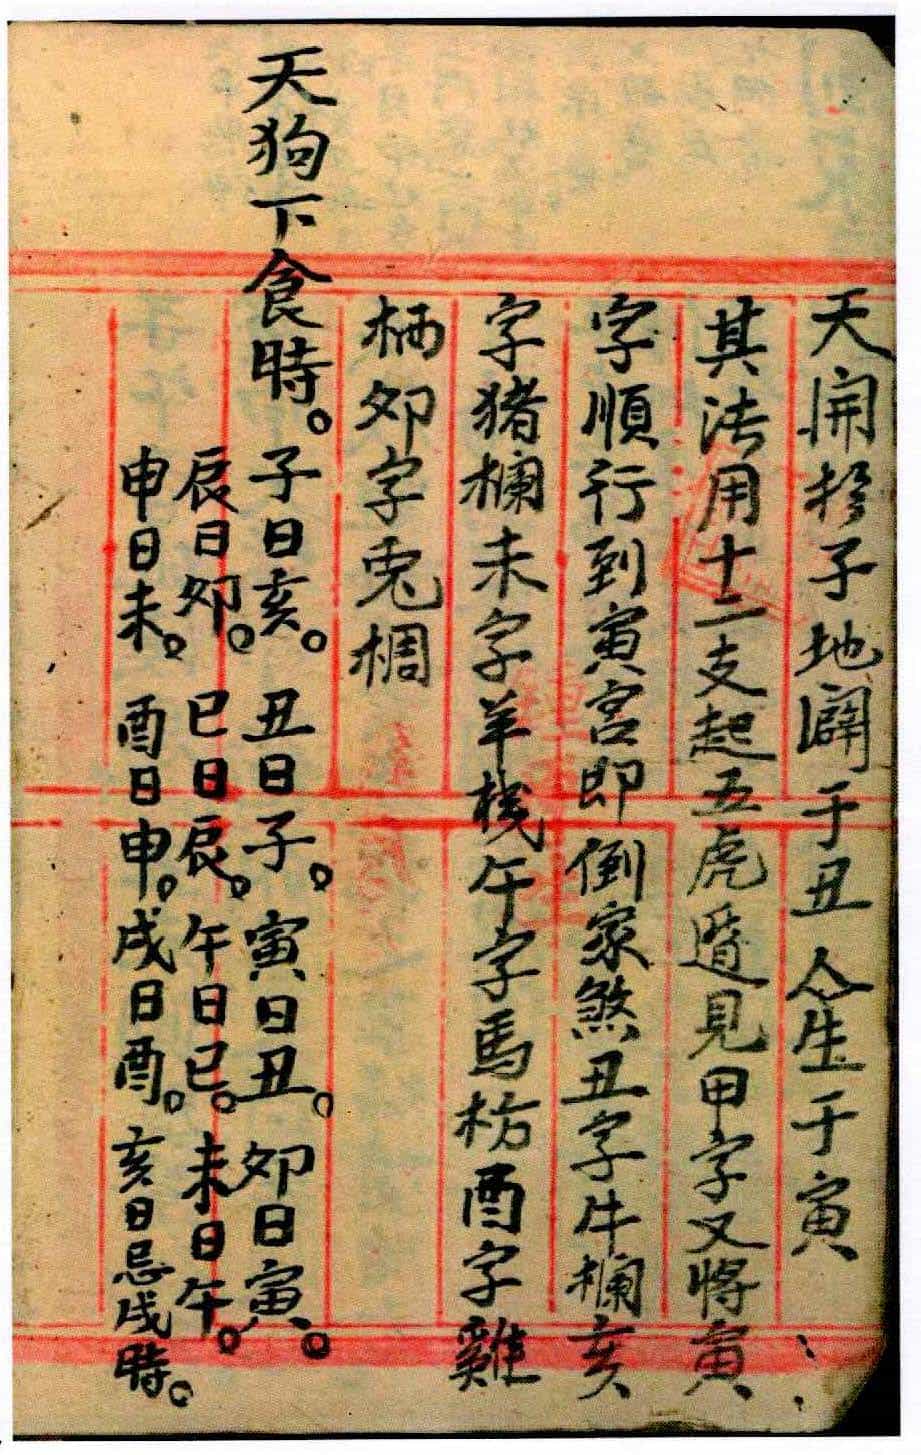 天開於子地闢于丑人生于寅
其法用十二支起五虎遁見甲字又將寅
字順行到寅宮即倒家煞丑字牛欄亥
字猪欄未字羊棧午字馬枋酉字雞
栖卯字兎椆
天狗下食時。子日亥。丑日子。寅日丑。卯日寅。
辰日卯。巳日辰。午日巳。未日午。
申日未。酉日申。戌日酉。亥日忌戌時。